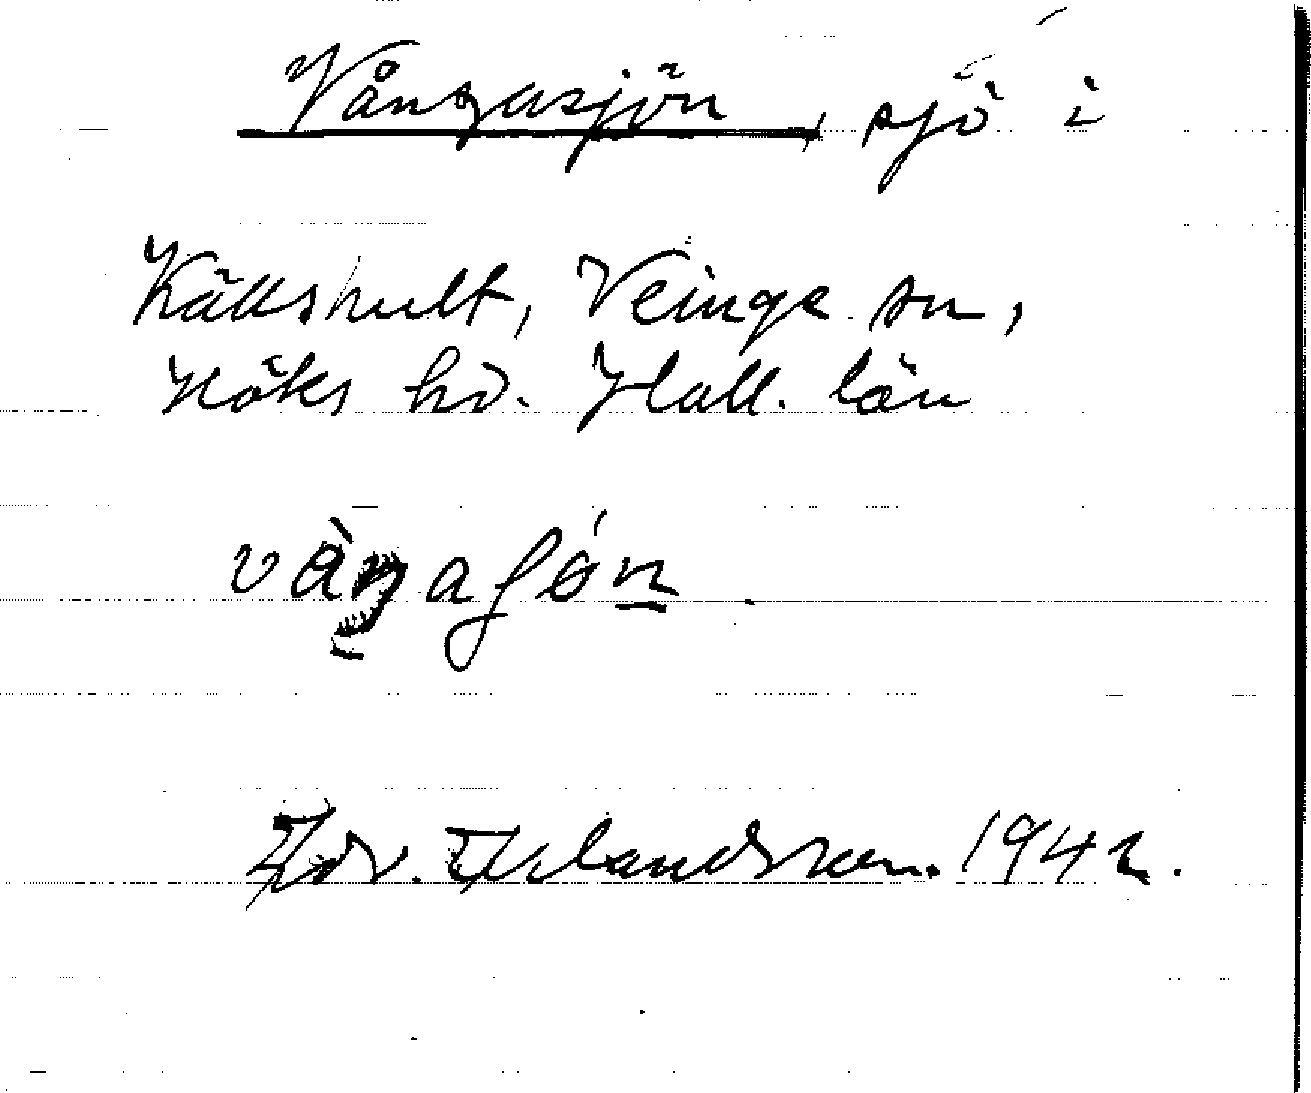 Vångasjön, sjö i
Källshult, Veinge sn,
Höks hd. Hall. län
vàŋaʃón
Edv. Erlandsson. 1942.